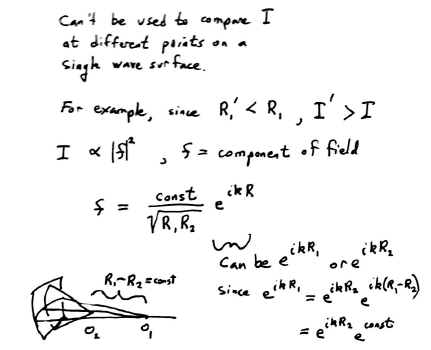 Can't be used to compare I
at different points on a
single wave surface.
For example, since R₁' < R₁ , I' > I
I ∝ |f|² , f = component of field
f = const / √R₁R₂ e^{ikR}
Can be e^{ikR₁} or e^{ikR₂}
since e^{ikR₁} = e^{ikR₂} e^{ik(R₁-R₂)}
= e^{ikR₂} e^{const}
R₁-R₂ = const
O₂ O₁